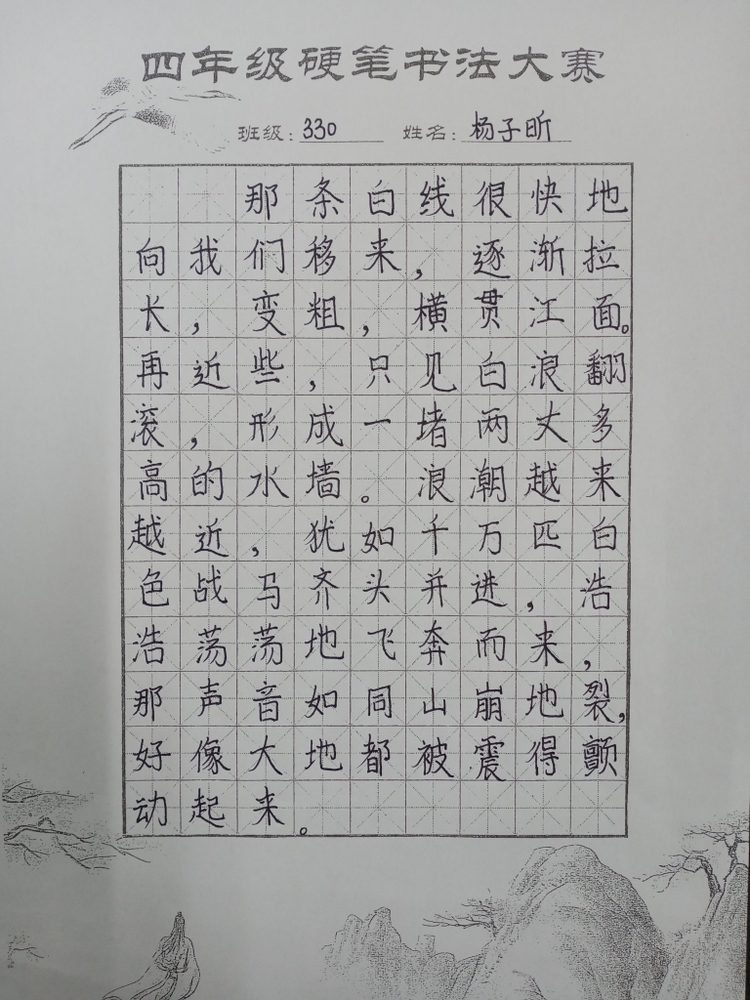 四年级硬笔书法大赛
班级：330 姓名：杨子昕
那条白线很快地
向我们移来，逐渐拉
长，变粗，横贯江面。
再近些，只见白浪翻
滚，形成一堵两丈多
高的水墙。浪潮越来
越近，犹如千万匹白
色战马齐头并进，浩
浩荡荡地飞奔而来，
那声音如同山崩地裂，
好像大地都被震得颤
动起来。